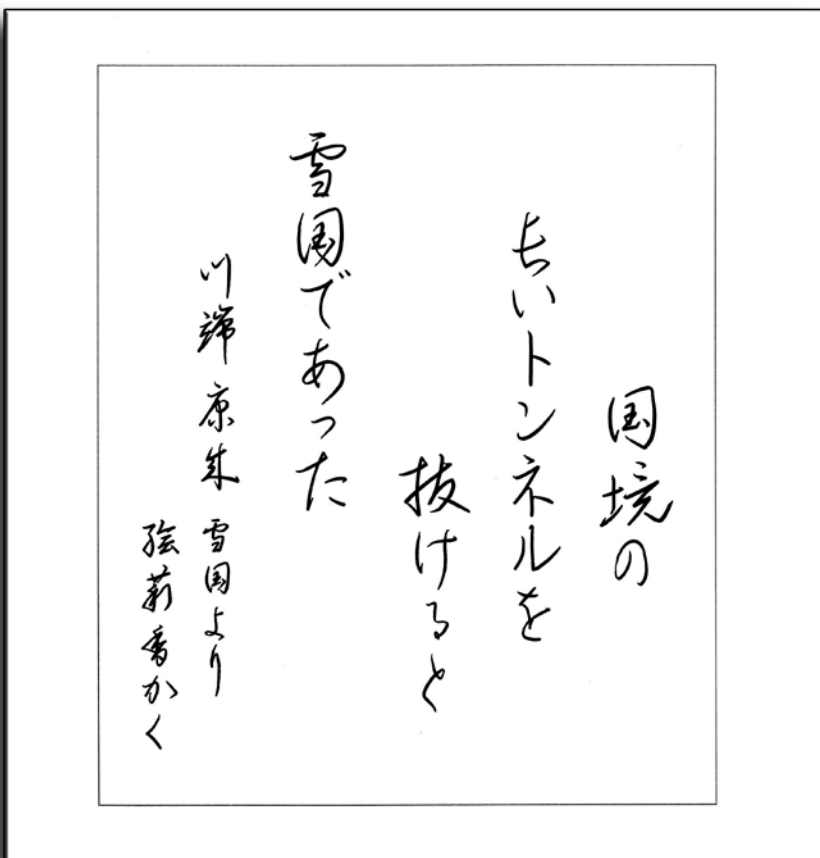 国境の
長いトンネルを
抜けると
雪国であった
川端康成 雪国より
絵莉香かく